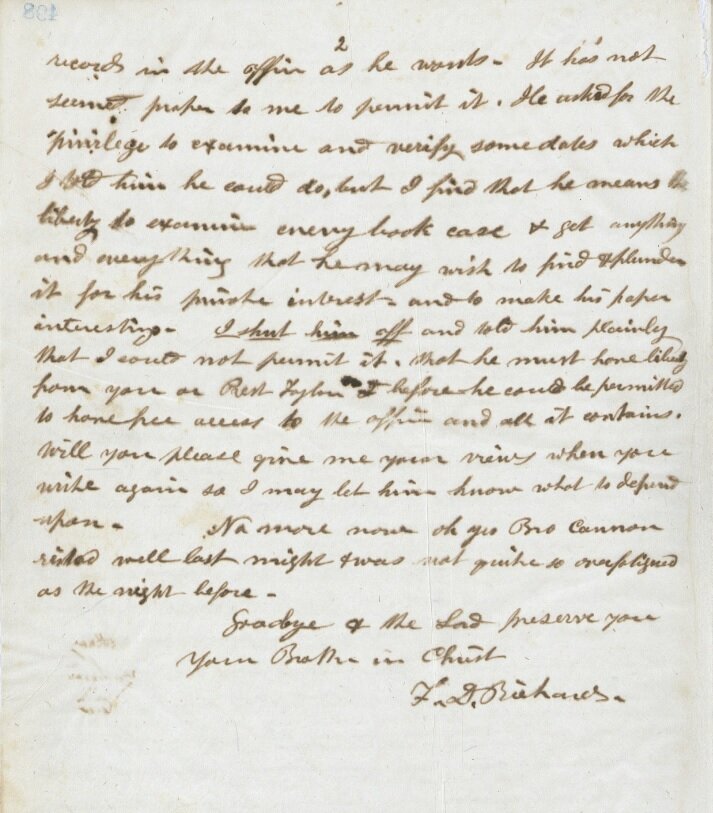 408
2
records in the office as he wants. It has not
seemed proper to me to permit it. He asked for the
privilege to examine and verify some dates which
I told him he could do, but I find that he means the
liberty to examine every book case & get anything
and everything that he may wish to find & plunder
it for his private interest - and to make his paper
interesting - I shut him off and told him plainly
that I could not permit it. that he must have liberty
from you or Prest Taylor before he could be permitted
to have free access to the office and all it contains.
Will you please give me your views when you
write again so I may let him know what to depend
upon - No more now oh yes Bro Cannon
rested well last night & was not quite so
as the night before -
Goodbye & the Lord preserve you
Your Brother in Christ
F. D. Richards.